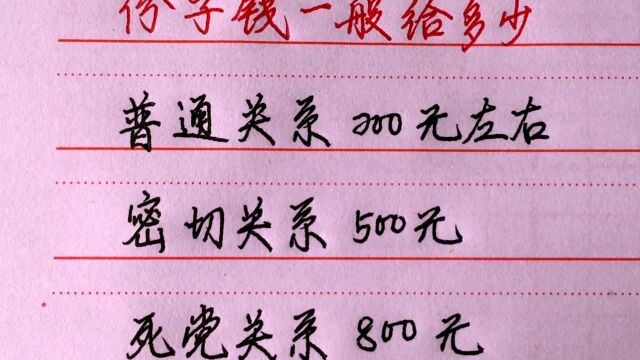 份子钱一般给多少
普通关系200元左右
密切关系500元
死党关系800元